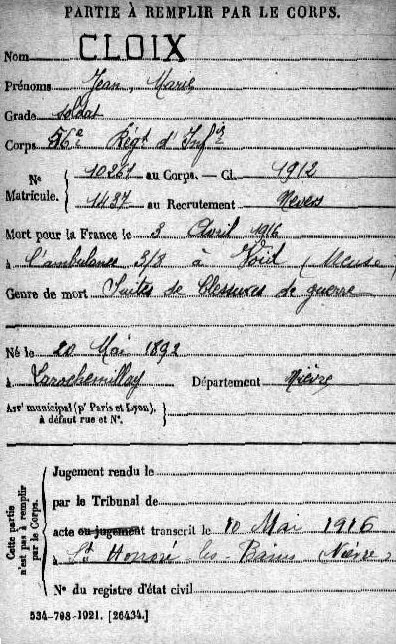 PARTIE À REMPLIR PAR LE CORPS.
Nom CLOIX
Prénoms Jean, Marie
Grade soldat
Corps 56e Régt d'Infie
No Matricule. 10261 au Corps. — Cl. 1912
1437 au Recrutement Nevers
Mort pour la France le 3 Avril 1916
à l'ambulance 3/8 à Void (Meuse)
Genre de mort Suites de blessures de guerre
Né le 20 Mai 1892
à Larochemillay Département Nièvre
Arrt municipal (pr Paris et Lyon),
à défaut rue et No.
Cette partie n'est pas à remplir par le Corps.
Jugement rendu le
par le Tribunal de
acte ou jugement transcrit le 10 Mai 1916
à St Honoré les-Bains (Nièvre)
No du registre d'état civil
534-708-1921. [26434.]